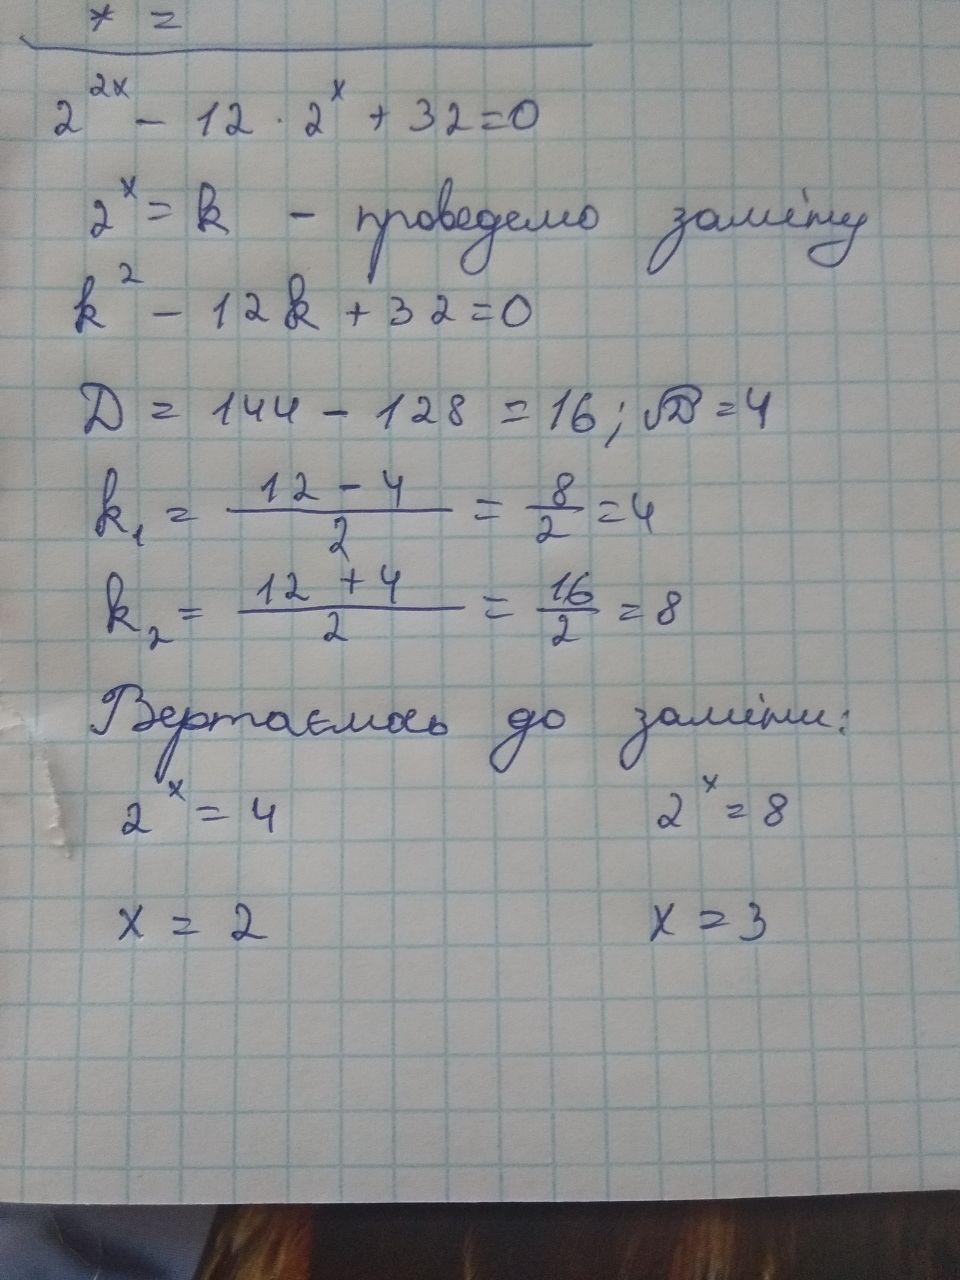 x =
2^{2x} - 12 · 2^x + 32 = 0
2^x = k - проведемо заміну
k^2 - 12k + 32 = 0
Д = 144 - 128 = 16; √Д = 4
k_1 = \frac{12 - 4}{2} = \frac{8}{2} = 4
k_2 = \frac{12 + 4}{2} = \frac{16}{2} = 8
Вертаємось до заміни:
2^x = 4 2^x = 8
x = 2 x = 3